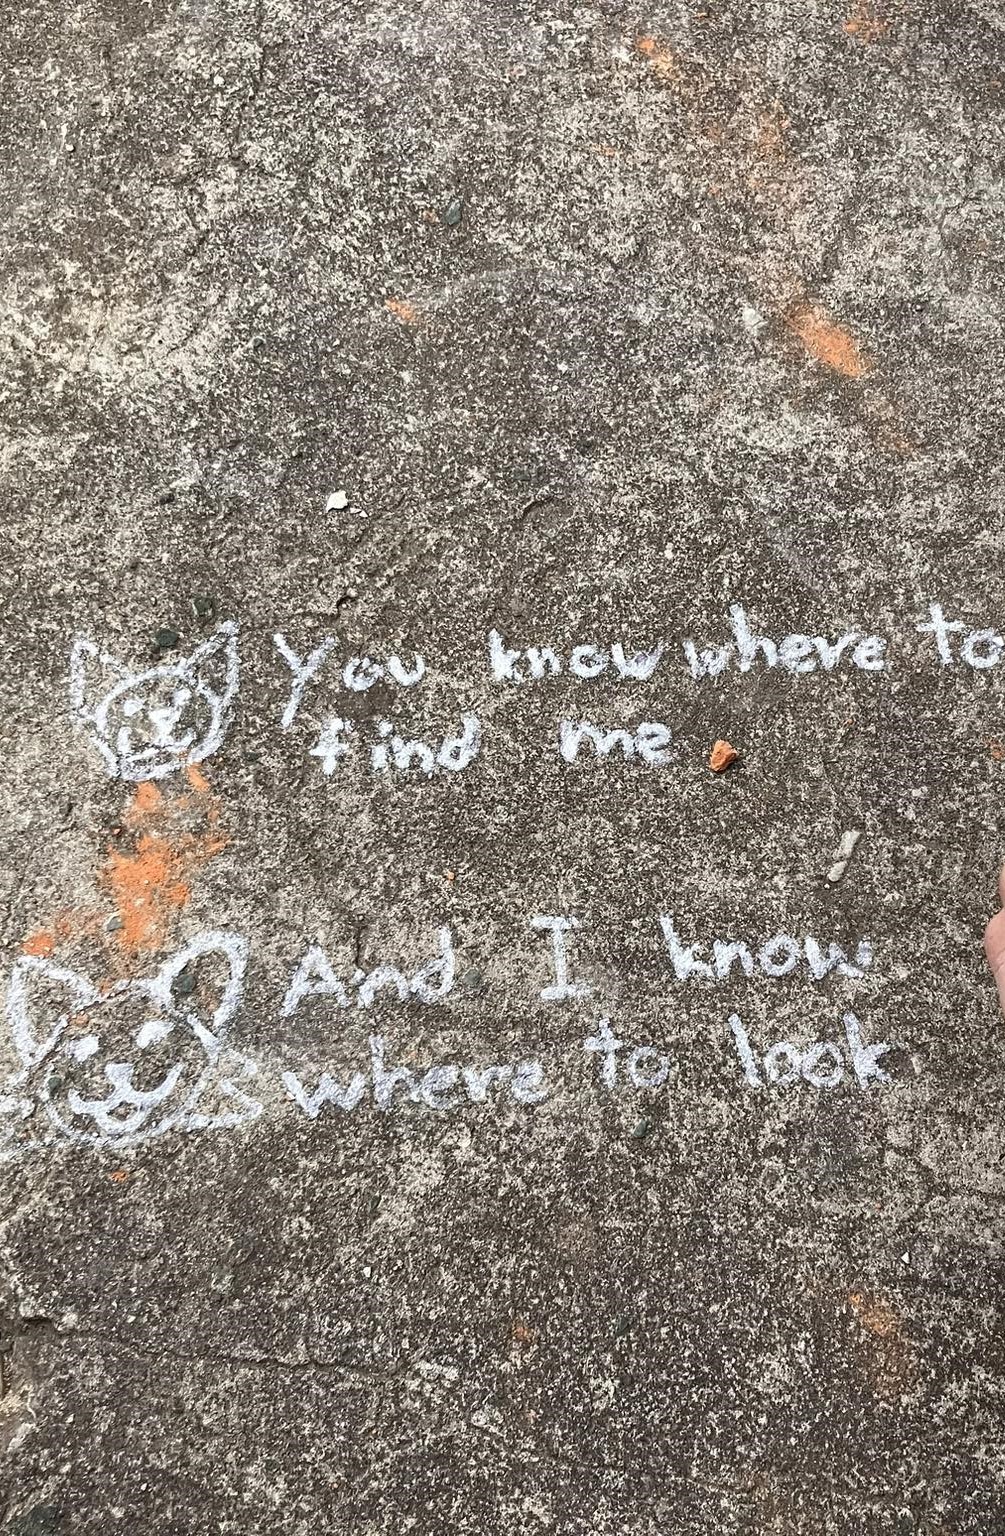 You know where to
find me
And I know
where to look